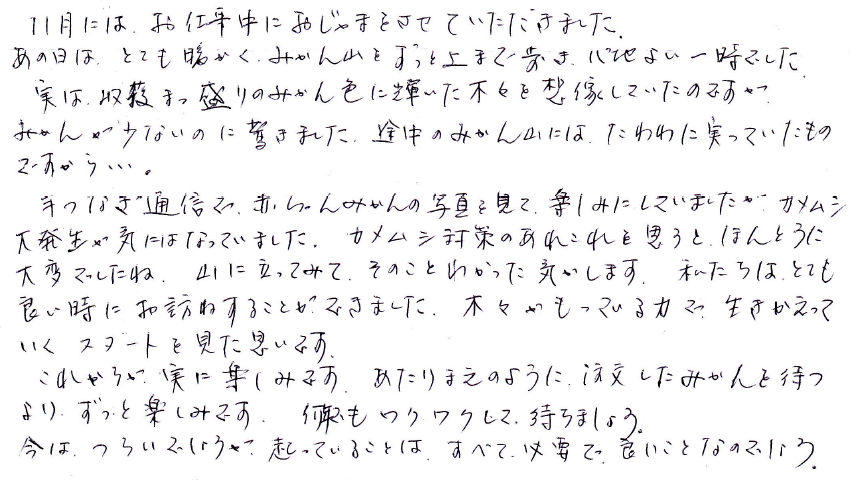 11月には、お仕事中におじゃまをさせていただきました。
あの日は、とても暖かく、みかん山をずっと上まで歩き、心地よい一時でした。
実は、収穫まっ盛りのみかん色に輝いた木々を想像していたのですが、
みかんが少ないのに驚きました。途中のみかん山には、たわわに実っていたもの
ですから…。
手つなぎ通信で、赤ちゃんみかんの写真を見て、楽しみにしていましたが、カメムシ
大発生が気にはなっていました。カメムシ対策のあれこれを思うと、ほんとうに
大変でしたね。山に立ってみて、そのことわかった気がします。私たちは、とても
良い時にお訪ねすることができました。木々がもっている力で、生きかえって
いくスタートを見た思いです。
これからが、実に楽しみです。あたりまえのように、注文したみかんを待つ
より、ずっと楽しみです。何年もワクワクして、待ちましょう。
今は、つらいでしょうが、起っていることは、すべて、必要で、良いことなのでしょう。